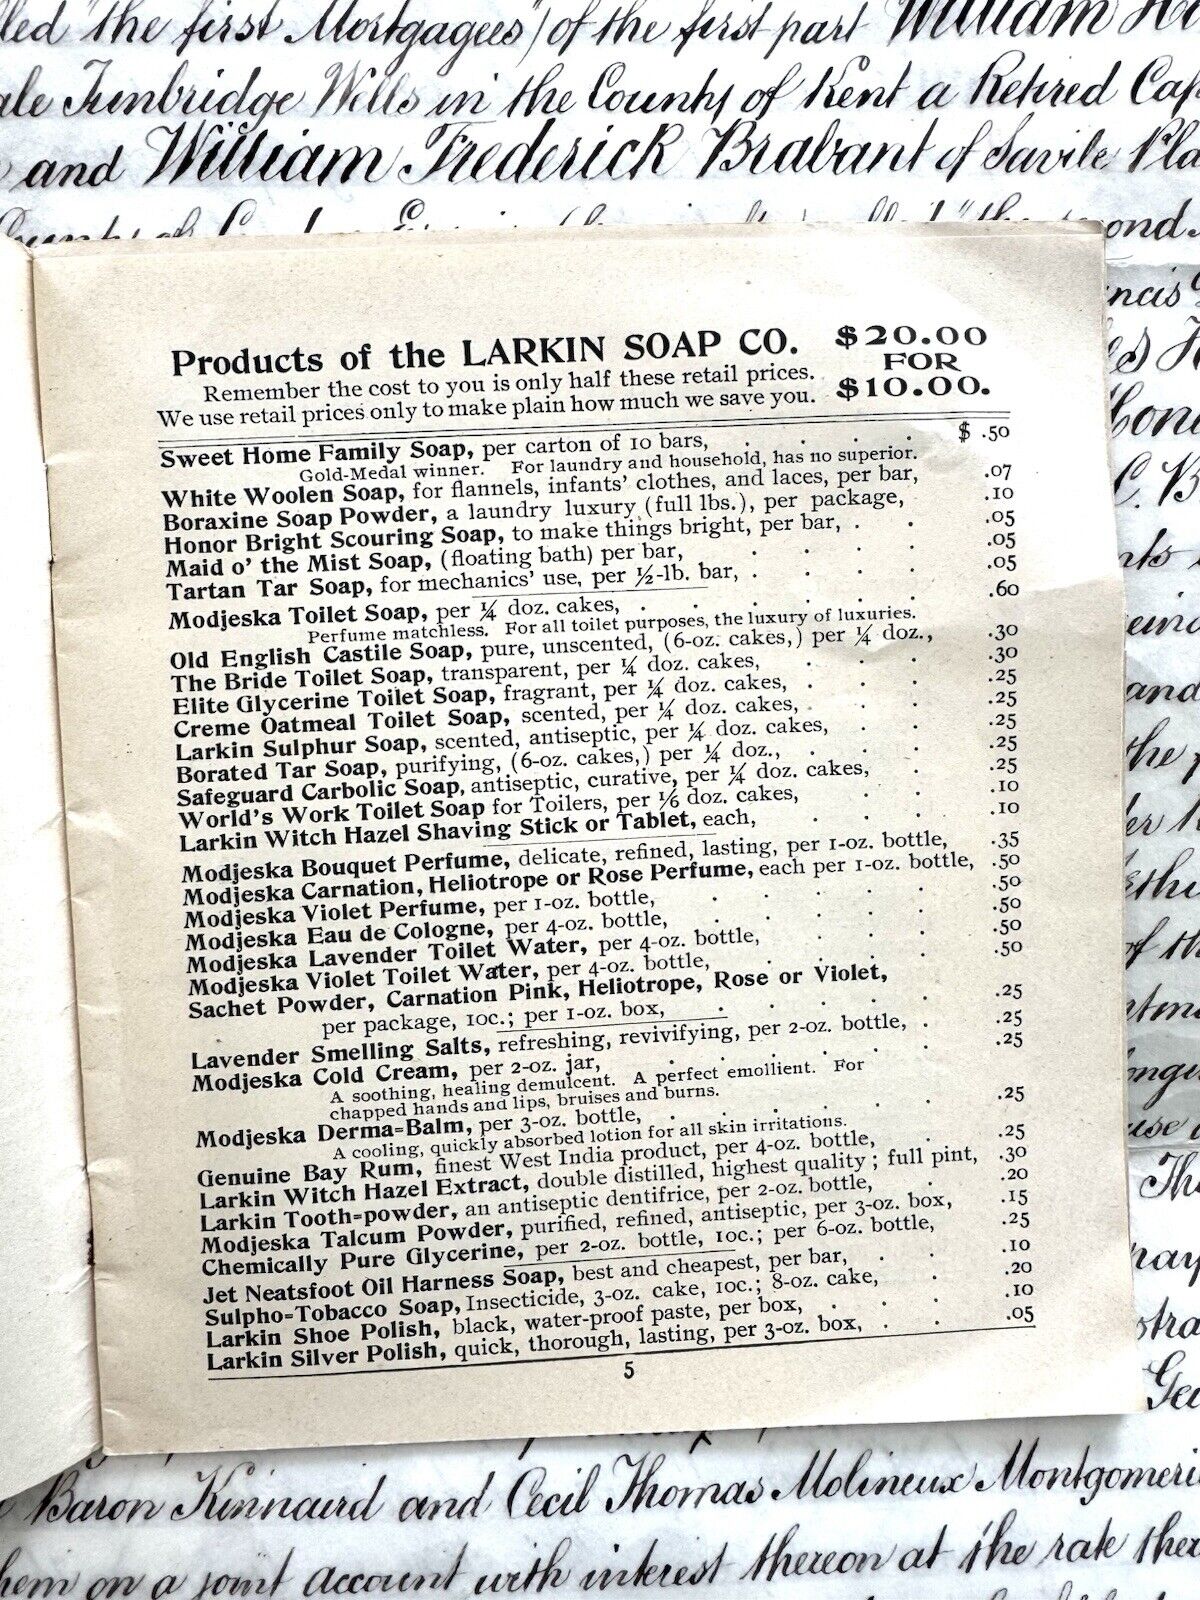 led "the first Mortgagees") of the first part William
Tunbridge Wells in the County of Kent a Retired
and William Frederick Brabant of Savile
County of
Products of the LARKIN SOAP CO.
$20.00
FOR
$10.00.
Remember the cost to you is only half these retail prices.
We use retail prices only to make plain how much we save you.
Sweet Home Family Soap, per carton of 10 bars, . . . . $ .50
Gold-Medal winner. For laundry and household, has no superior.
White Woolen Soap, for flannels, infants' clothes, and laces, per bar, .07
Boraxine Soap Powder, a laundry luxury (full lbs.), per package, .10
Honor Bright Scouring Soap, to make things bright, per bar, . . .05
Maid o' the Mist Soap, (floating bath) per bar, . . . . .05
Tartan Tar Soap, for mechanics' use, per ½-lb. bar, . . . . .05
Modjeska Toilet Soap, per ¼ doz. cakes, . . . . . . .60
Perfume matchless. For all toilet purposes, the luxury of luxuries.
Old English Castile Soap, pure, unscented, (6-oz. cakes,) per ¼ doz., .30
The Bride Toilet Soap, transparent, per ¼ doz. cakes, . . . .30
Elite Glycerine Toilet Soap, fragrant, per ¼ doz. cakes, . . . .25
Creme Oatmeal Toilet Soap, scented, per ¼ doz. cakes, . . . .25
Larkin Sulphur Soap, scented, antiseptic, per ¼ doz. cakes, . . .25
Borated Tar Soap, purifying, (6-oz. cakes,) per ¼ doz., . . . .25
Safeguard Carbolic Soap, antiseptic, curative, per ¼ doz. cakes, . .25
World's Work Toilet Soap for Toilers, per ⅙ doz. cakes, . . .10
Larkin Witch Hazel Shaving Stick or Tablet, each, . . . .10
Modjeska Bouquet Perfume, delicate, refined, lasting, per 1-oz. bottle, .35
Modjeska Carnation, Heliotrope or Rose Perfume, each per 1-oz. bottle, .50
Modjeska Violet Perfume, per 1-oz. bottle, . . . . .50
Modjeska Eau de Cologne, per 4-oz. bottle, . . . . .50
Modjeska Lavender Toilet Water, per 4-oz. bottle, . . . .50
Modjeska Violet Toilet Water, per 4-oz. bottle, . . . . .50
Sachet Powder, Carnation Pink, Heliotrope, Rose or Violet,
per package, 10c.; per 1-oz. box, . . . . .25
Lavender Smelling Salts, refreshing, revivifying, per 2-oz. bottle, . .25
Modjeska Cold Cream, per 2-oz. jar, . . . . . . .25
A soothing, healing demulcent. A perfect emollient. For
chapped hands and lips, bruises and burns.
Modjeska Derma=Balm, per 3-oz. bottle, . . . . . . .25
A cooling, quickly absorbed lotion for all skin irritations.
Genuine Bay Rum, finest West India product, per 4-oz. bottle, . .25
Larkin Witch Hazel Extract, double distilled, highest quality; full pint, .30
Larkin Tooth=powder, an antiseptic dentifrice, per 2-oz. bottle, . .20
Modjeska Talcum Powder, purified, refined, antiseptic, per 3-oz. box, .15
Chemically Pure Glycerine, per 2-oz. bottle, 10c.; per 6-oz. bottle, .25
Jet Neatsfoot Oil Harness Soap, best and cheapest, per bar, . . .10
Sulpho=Tobacco Soap, Insecticide, 3-oz. cake, 10c.; 8-oz. cake, . .20
Larkin Shoe Polish, black, water-proof paste, per box, . . . .10
Larkin Silver Polish, quick, thorough, lasting, per 3-oz. box, . . .05
5
Baron Kinnaird and Cecil Thomas Molineux
on a joint account with interest thereon at the rate